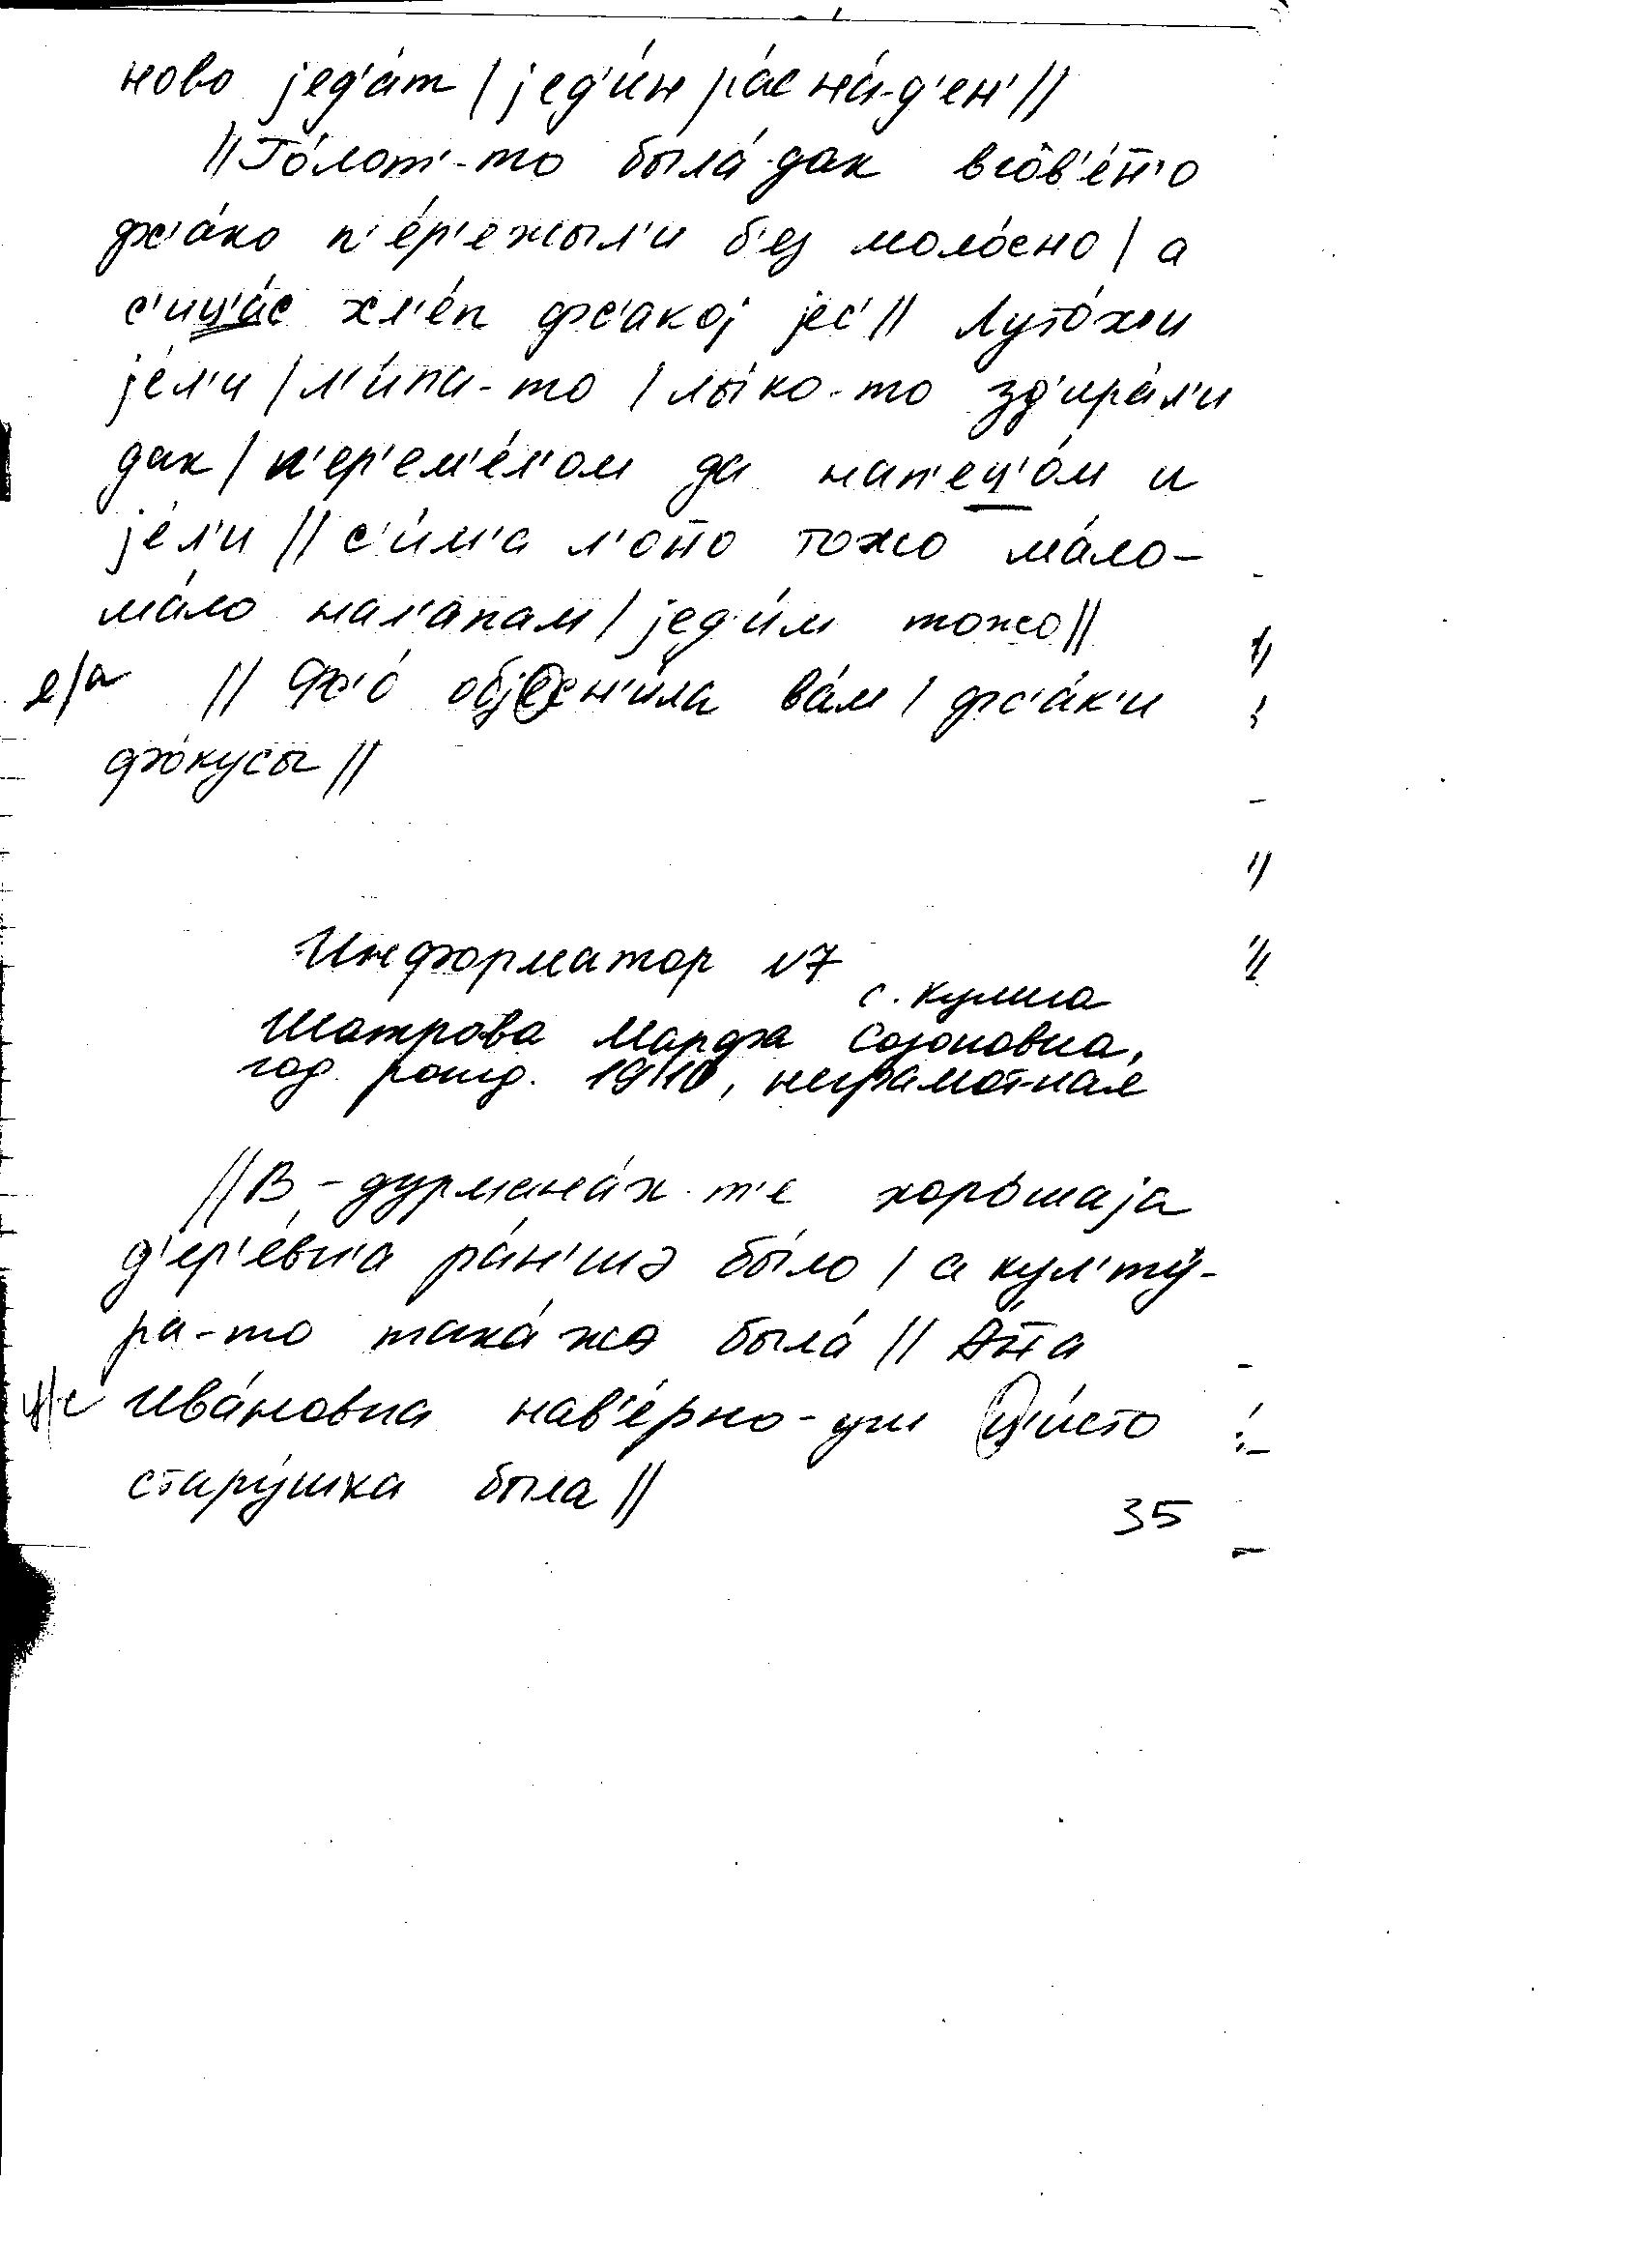 ново јед'а́т | јед'и́н ра́с на́-д'ен' ||
|| Го́лот'-то была́ дак всо в'е́т̄о
фс'а́ко п'е́р'ежыл'и б'ез моло́сно | а
с'иц'а́с хл'е́п фс'акој јес' || Луто́хи
је́л'и | л'и́па-то | лы́ко-то зд'ира́л'и
дак | п'ер'ем'е́л'ом да нап'ец'о́м и
је́л'и || с'и́м'а л'о́но тожо ма́ло-
ма́ло нал'апам | јед'и́м тожо ||
е/а || Фс'о́ објесн'и́ла ва́м | фс'а́к'и
фо́кусы ||
Информатор № 7
с. Кулига
Шатрова Марфа Созоновна,
год. рожд. 1910, неграмотная
|| В-дурмана́х-т'е хоро́шаја
д'ер'е́вн'а ра́н'шэ бы́ло | а кул'ту́-
ра-то така́ жэ была́ || А́н̄а
Ива́новна нав'е́рно-уш ц'и́сто
стару́шка была ||
35